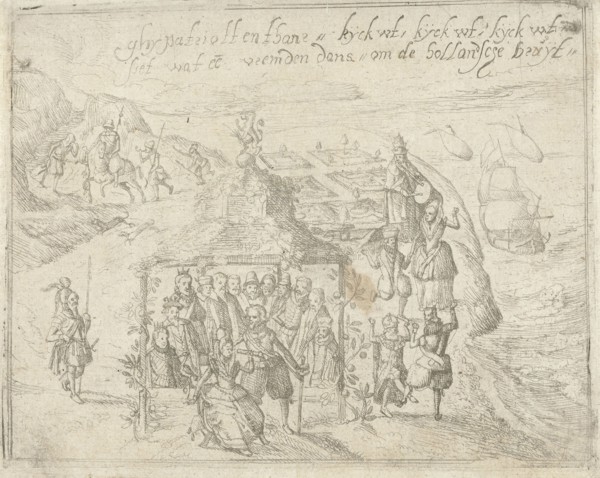 ghij patriotten thans „ kijck wt, kijck wt, kijck wt „
siet wat eē vremden dans „ om de hollantsche bruyt „